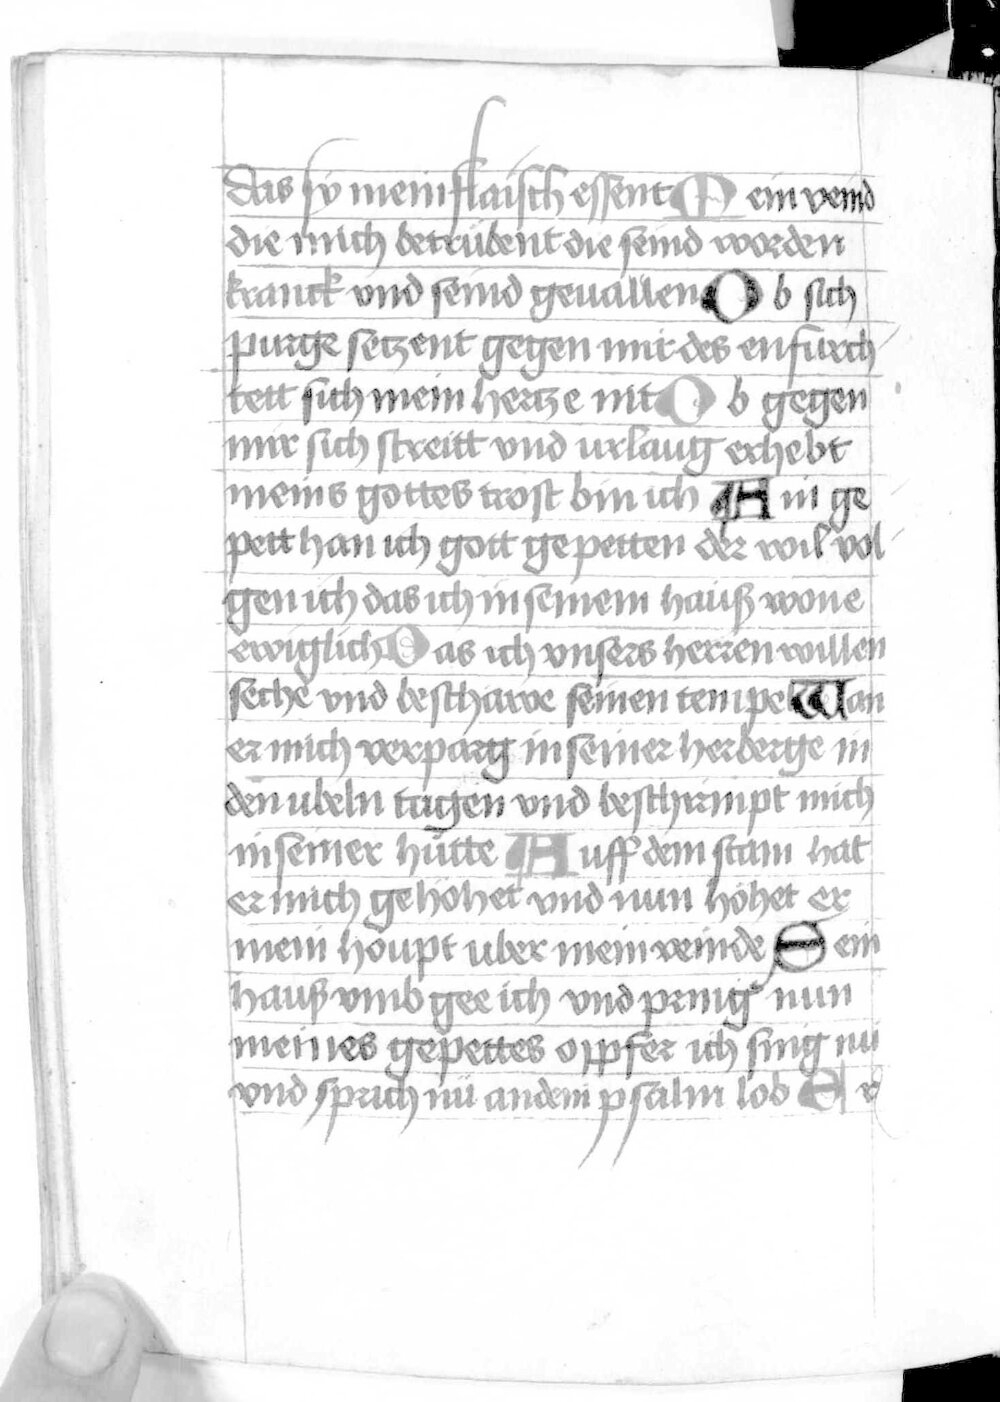 das sy mein flaisch essent Mein veind
die mich betrübent die seind worden
kranck vnd seind geuallen Ob sich
purge setzent gegen mir des enfürch
tett sich mein hertze nit Ob gegen
mir sich streitt vnd urlaug erhebt
meins gottes trost bin ich Ain ge
pett han ich gott gepetten der wil vol
gen ich das ich in seinem hauß wone
ewiglich Das ich vnsers herren willen
seche vnd beschawe seinen tempel Wan
er mich verparg in seiner herberge in
den ubeln tagen vnd beschirmpt mich
in seiner hütte Auff dem stam hat
er mich gehöhet vnd nun höhet er
mein houpt uber mein veinde Sein
hauß vmb gee ich vnd pring nun
meines gepettes opfer ich sing nu
vnd sprich nü an dem psalm lob Er